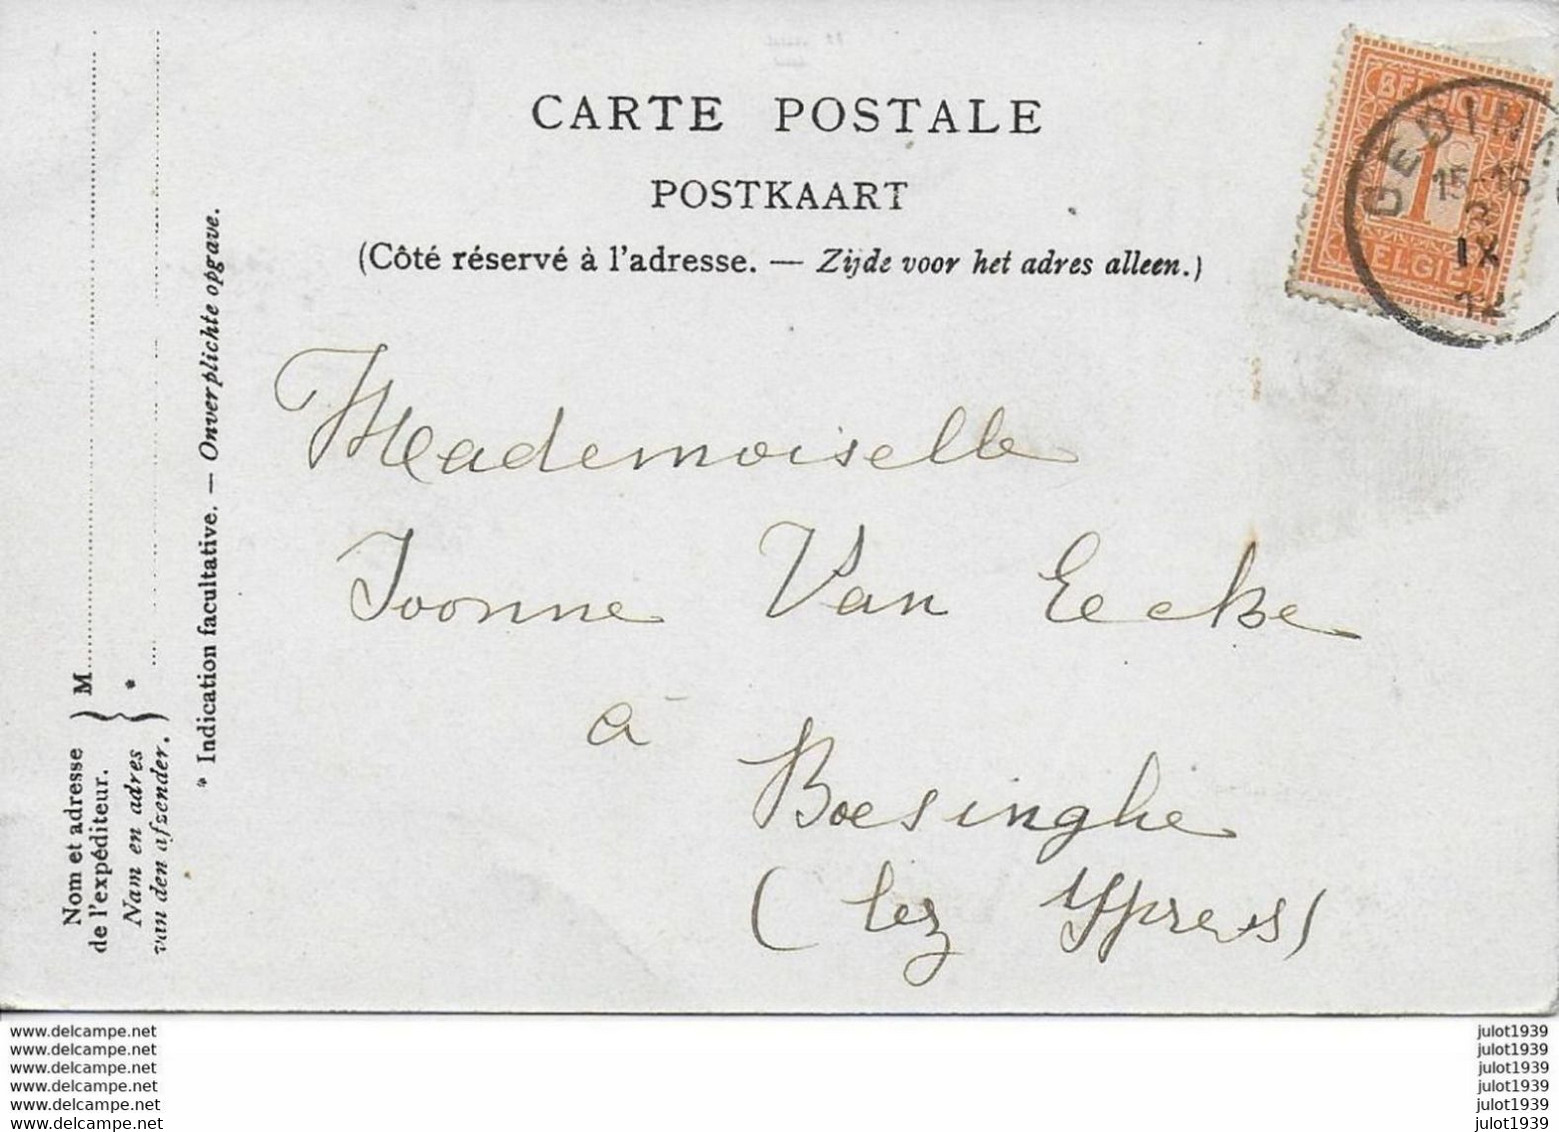 CARTE POSTALE
POSTKAART
(Côté réservé à l'adresse. — Zijde voor het adres alleen.)
BELGIQUE
1 C
BELGIË
GEDIN
15-16
3
IX
12
Mademoiselle
Ivonne Van Eecke
à
Boesinghe
(lez Ypres)
* Indication facultative. — Onverplichte opgave.
M
*
Nom et adresse
de l'expéditeur.
Nam en adres
van den afzender.
www.delcampe.net
www.delcampe.net
www.delcampe.net
www.delcampe.net
www.delcampe.net
www.delcampe.net
julot1939
julot1939
julot1939
julot1939
julot1939
julot1939